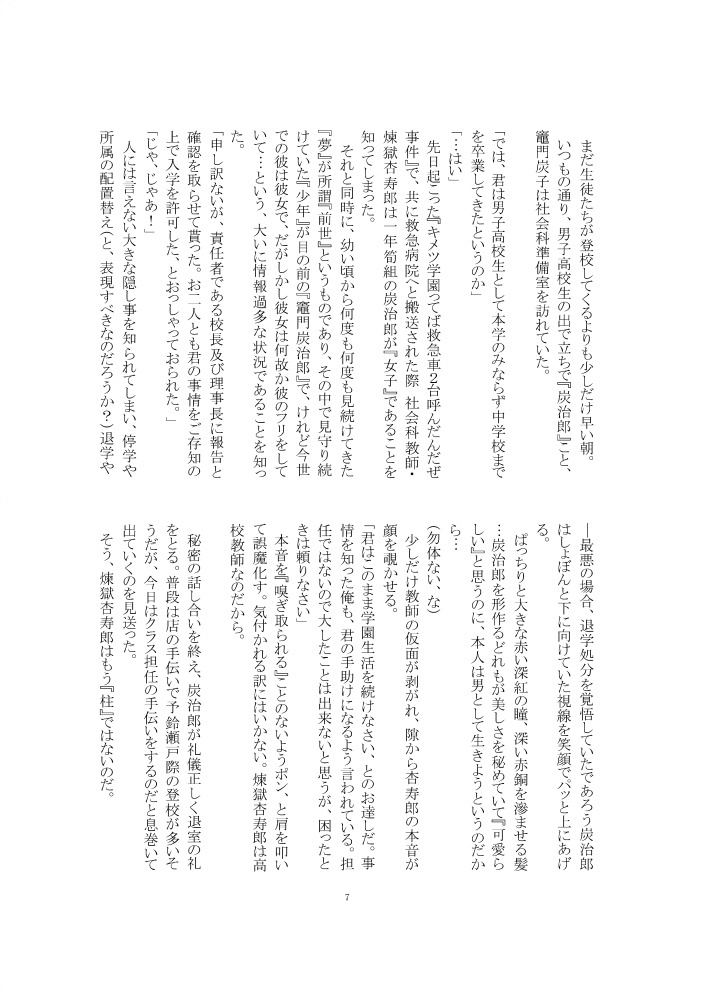 まだ生徒たちが登校してくるよりも少しだけ早い朝。
いつもの通り、男子高校生の出で立ちで『炭治郎』こと、
竈門炭子は社会科準備室を訪れていた。
「では、君は男子高校生として本学のみならず中学校まで
を卒業してきたというのか」
「…はい」
先日起こった『キメツ学園つてば救急車2台呼んだんだぜ
事件』で、共に救急病院へと搬送された際 社会科教師・
煉獄杏寿郎は一年筍組の炭治郎が『女子』であることを
知ってしまった。
それと同時に、幼い頃から何度も何度も見続けてきた
『夢』が所謂『前世』というものであり、その中で見守り続
けていた『少年』が目の前の『竈門炭治郎』で、けれど今世
での彼は彼女で、だがしかし彼女は何故か彼のフリをして
いて…という、大いに情報過多な状況であることを知っ
た。
「申し訳ないが、責任者である校長及び理事長に報告と
確認を取らせて貰った。お二人とも君の事情をご存知の
上で入学を許可した、とおっしゃっておられた。」
「じゃ、じゃあ！」
人には言えない大きな隠し事を知られてしまい、停学や
所属の配置替え（と、表現すべきなのだろうか？）退学や
―最悪の場合、退学処分を覚悟していたであろう炭治郎
はしょぼんと下に向けていた視線を笑顔でパッと上にあげ
る。
ぱっちりと大きな赤い深紅の瞳、深い赤銅を滲ませる髪
…炭治郎を形作るどれもが美しさを秘めていて『可愛ら
しい』と思うのに、本人は男として生きようというのだか
ら…
（勿体ない、な）
少しだけ教師の仮面が剥がれ、隙から杏寿郎の本音が
顔を覗かせる。
「君はこのまま学園生活を続けなさい、とのお達しだ。事
情を知った俺も、君の手助けになるよう言われている。担
任ではないので大したことは出来ないと思うが、困ったと
きは頼りなさい」
本音を『嗅ぎ取られる』ことのないようポン、と肩を叩い
て誤魔化す。気付かれる訳にはいかない。煉獄杏寿郎は高
校教師なのだから。
秘密の話し合いを終え、炭治郎が礼儀正しく退室の礼
をとる。普段は店の手伝いで予鈴瀬戸際の登校が多いそ
うだが、今日はクラス担任の手伝いをするのだと息巻いて
出ていくのを見送った。
そう、煉獄杏寿郎はもう『柱』ではないのだ。
7